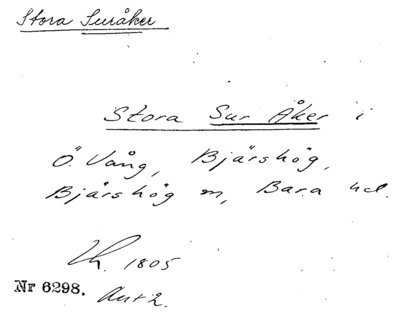 Stora Suråker
Stora Sur Åker i
Ö. Vång, Bjärshög,
Bjärshög sn, Bara hd.
Lh. 1805
Nr 6298.
Avt 2.